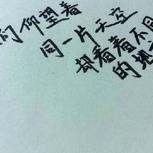 们仰望着
同一片天空
却看着不同
的地